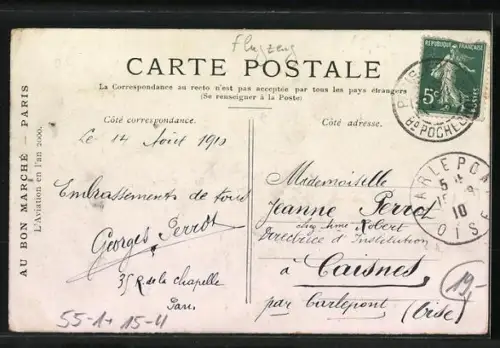 Flugzeug
CARTE POSTALE
La Correspondance au recto n'est pas acceptée par tous les pays étrangers
(Se renseigner à la Poste)
Côté correspondance.
Côté adresse.
AU BON MARCHÉ — PARIS
L'Aviation en l'an 2000.
Le 14 Août 1910
Embrassements de tous
Georges Perrot
35 R. de la Chapelle
Paris
55-1+ 15-4
Mademoiselle
Jeanne Perrot
chez Mme Robert
Directrice d'Institution
à Caisnes
par Carlepont (Oise)
19.-
REPUBLIQUE FRANÇAISE
5c
POSTES
PARIS
Bd ROCHECH
CARLEPONT
10
OISE